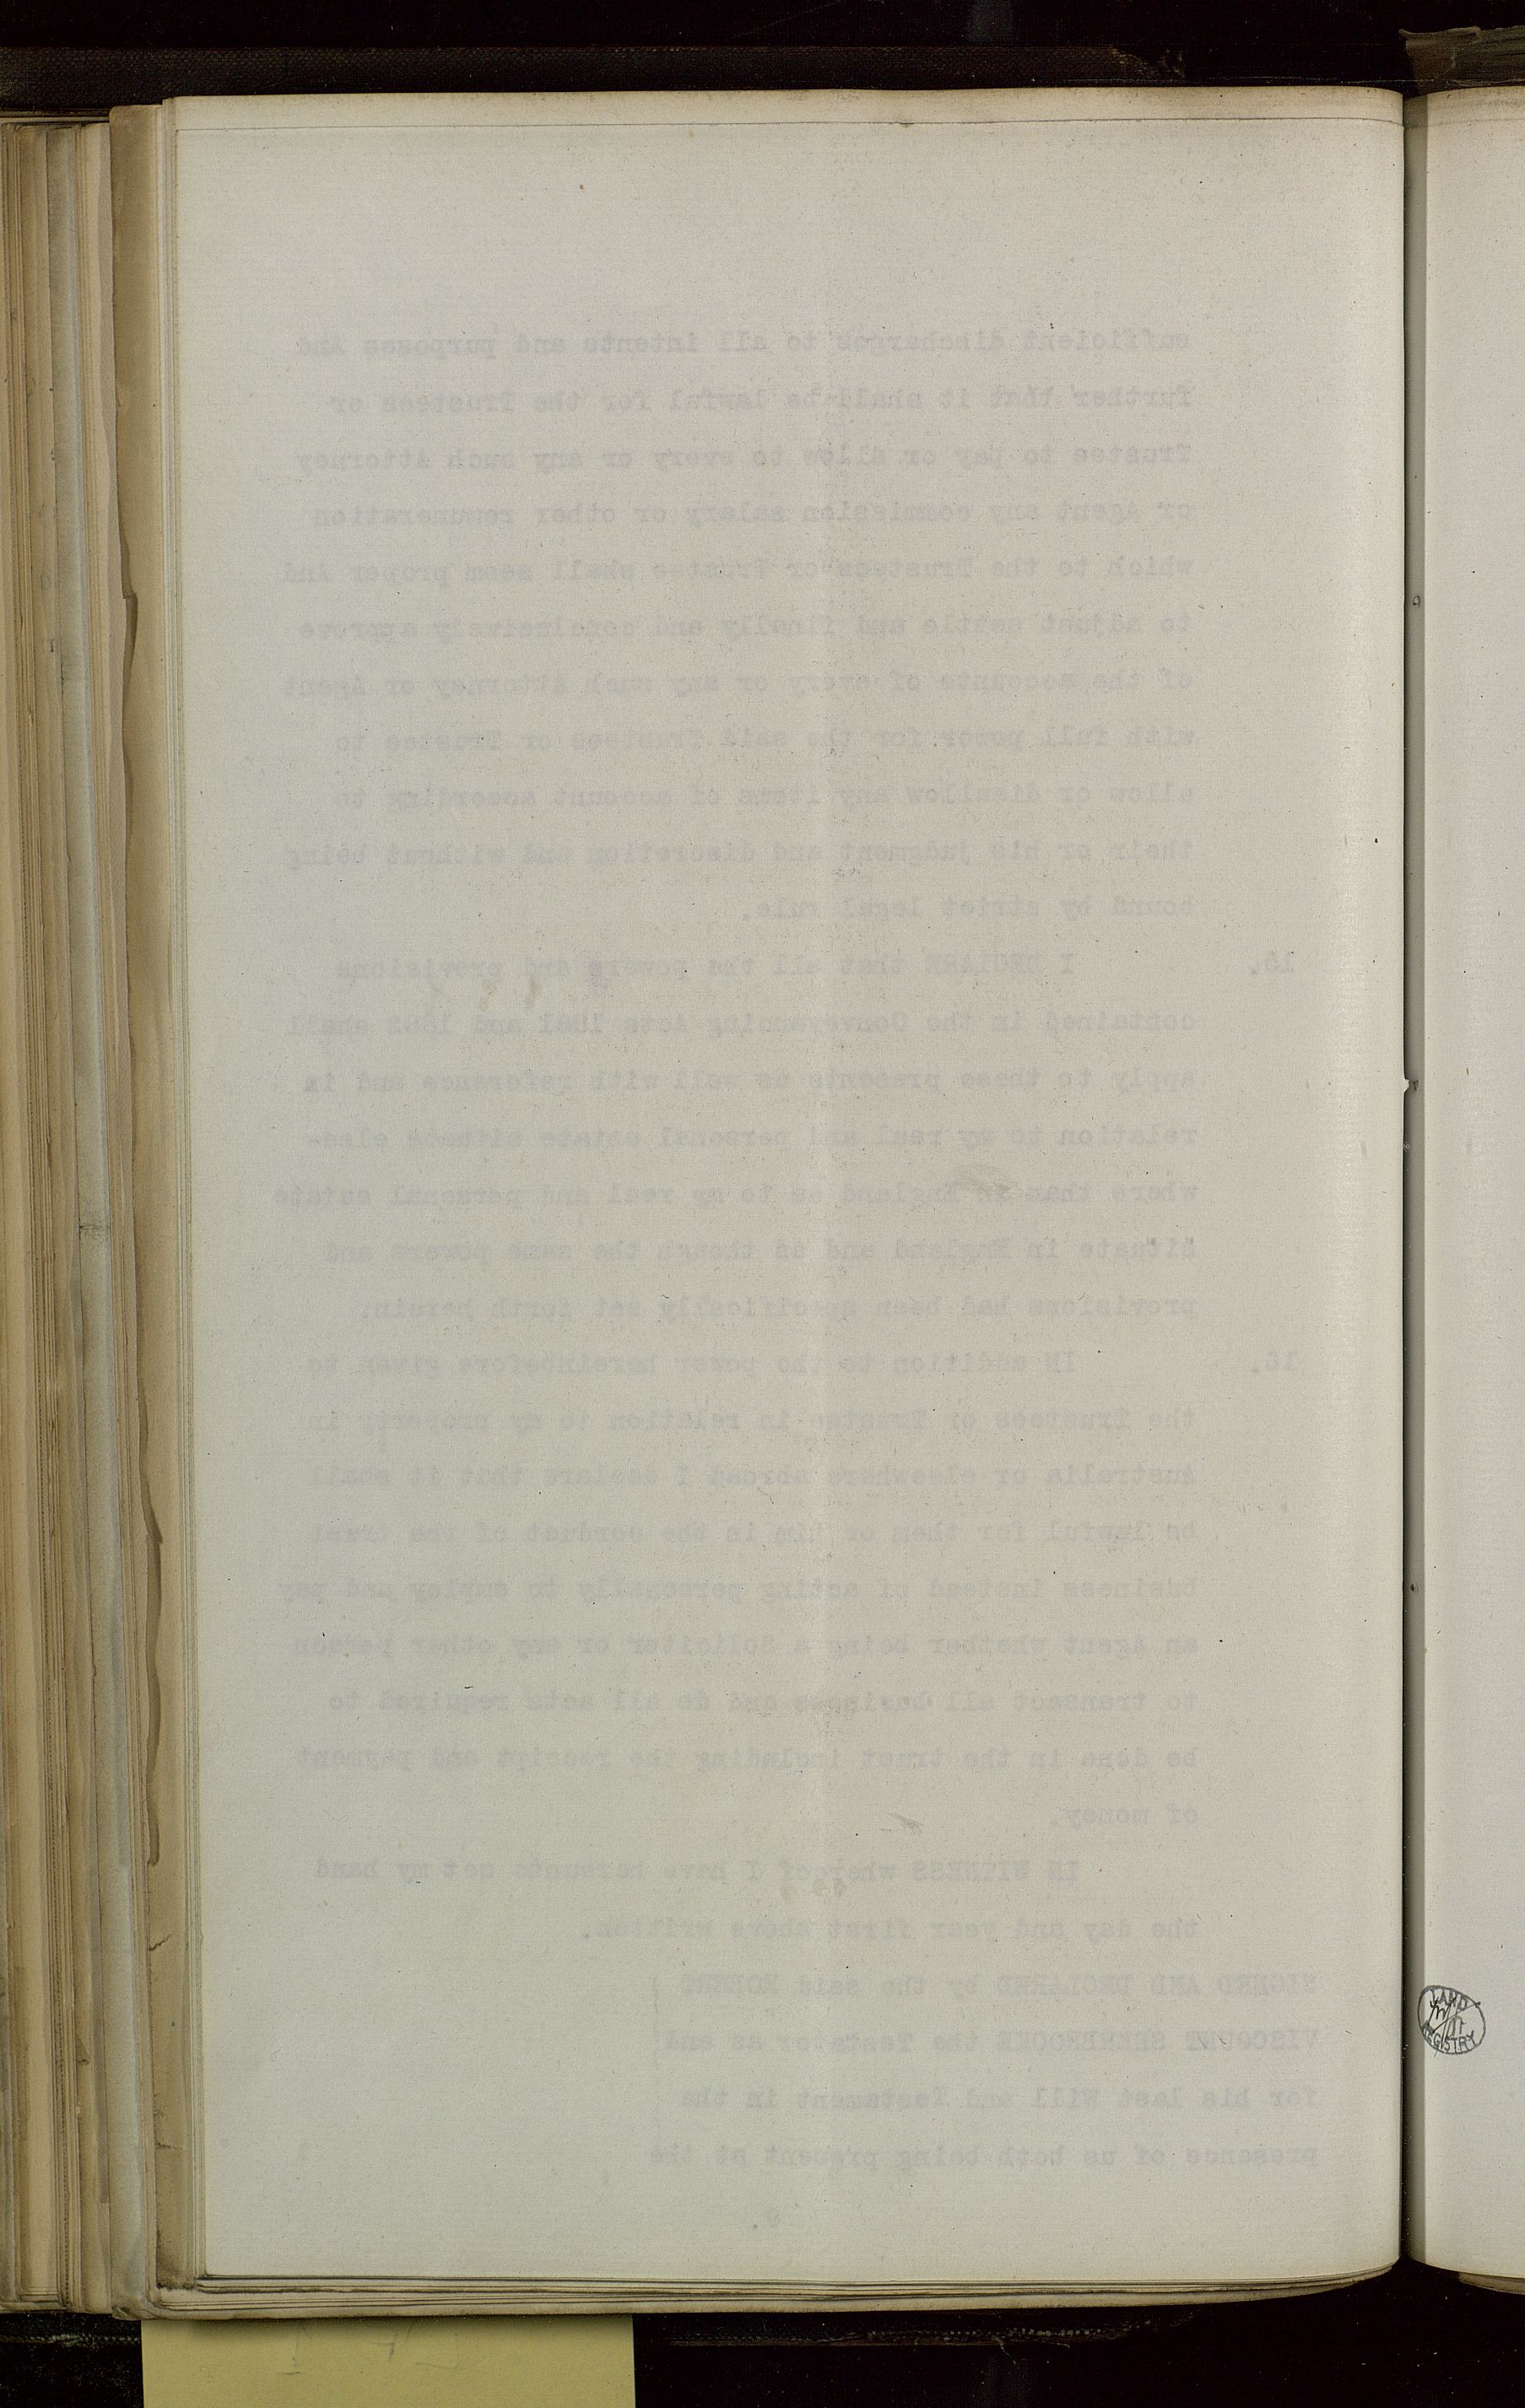 sufficient discharges to all intents and purposes And
further that it shall be lawful for the Trustees or
Trustee to pay or allow to every or any such Attorney
or Agent any commission salary or other remuneration
which to the Trustees or Trustee shall seem proper And
to adjust settle and finally and conclusively approve
of the accounts of every or any such Attorney or Agent
with full power for the said Trustees or Trustee to
allow or disallow any items of account according to
their or his judgment and discretion and without being
bound by strict legal rule.
15. I DECLARE that all the powers and provisions
contained in the Conveyancing Acts 1881 and 1882 shall
apply to these presents as well with reference and in
relation to my real and personal estate situate else-
where than in England as to my real and personal estate
situate in England and as though the same powers and
provisions had been specifically set forth herein.
16. IN addition to the power hereinbefore given to
the Trustees or Trustee in relation to my property in
Australia or elsewhere abroad I declare that it shall
be lawful for them or him in the conduct of the trust
business instead of acting personally to employ and pay
an Agent whether being a Solicitor or any other person
to transact all business and do all acts required to
be done in the trust including the receipt and payment
of money.
IN WITNESS whereof I have hereunto set my hand
the day and year first above written.
SIGNED AND DECLARED by the said ROBERT
VISCOUNT SHERBROOKE the Testator as and
for his last Will and Testament in the
presence of us both being present at the
9.
LAND
REGISTRY